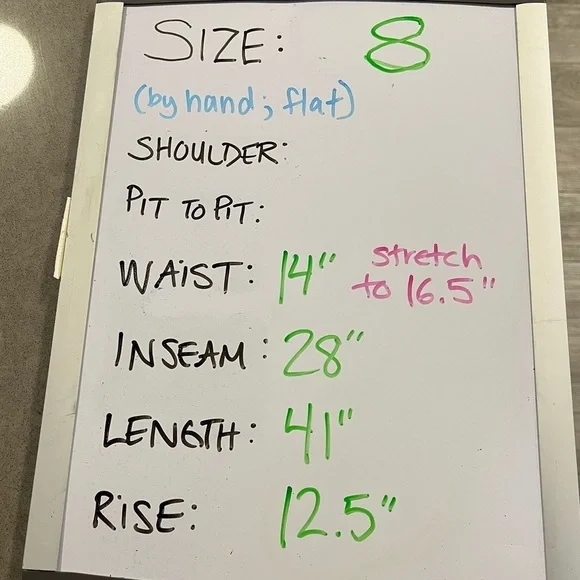 SIZE: 8
(by hand; flat)
SHOULDER:
PIT TO PIT:
WAIST: 14" stretch to 16.5"
INSEAM: 28"
LENGTH: 41"
RISE: 12.5"